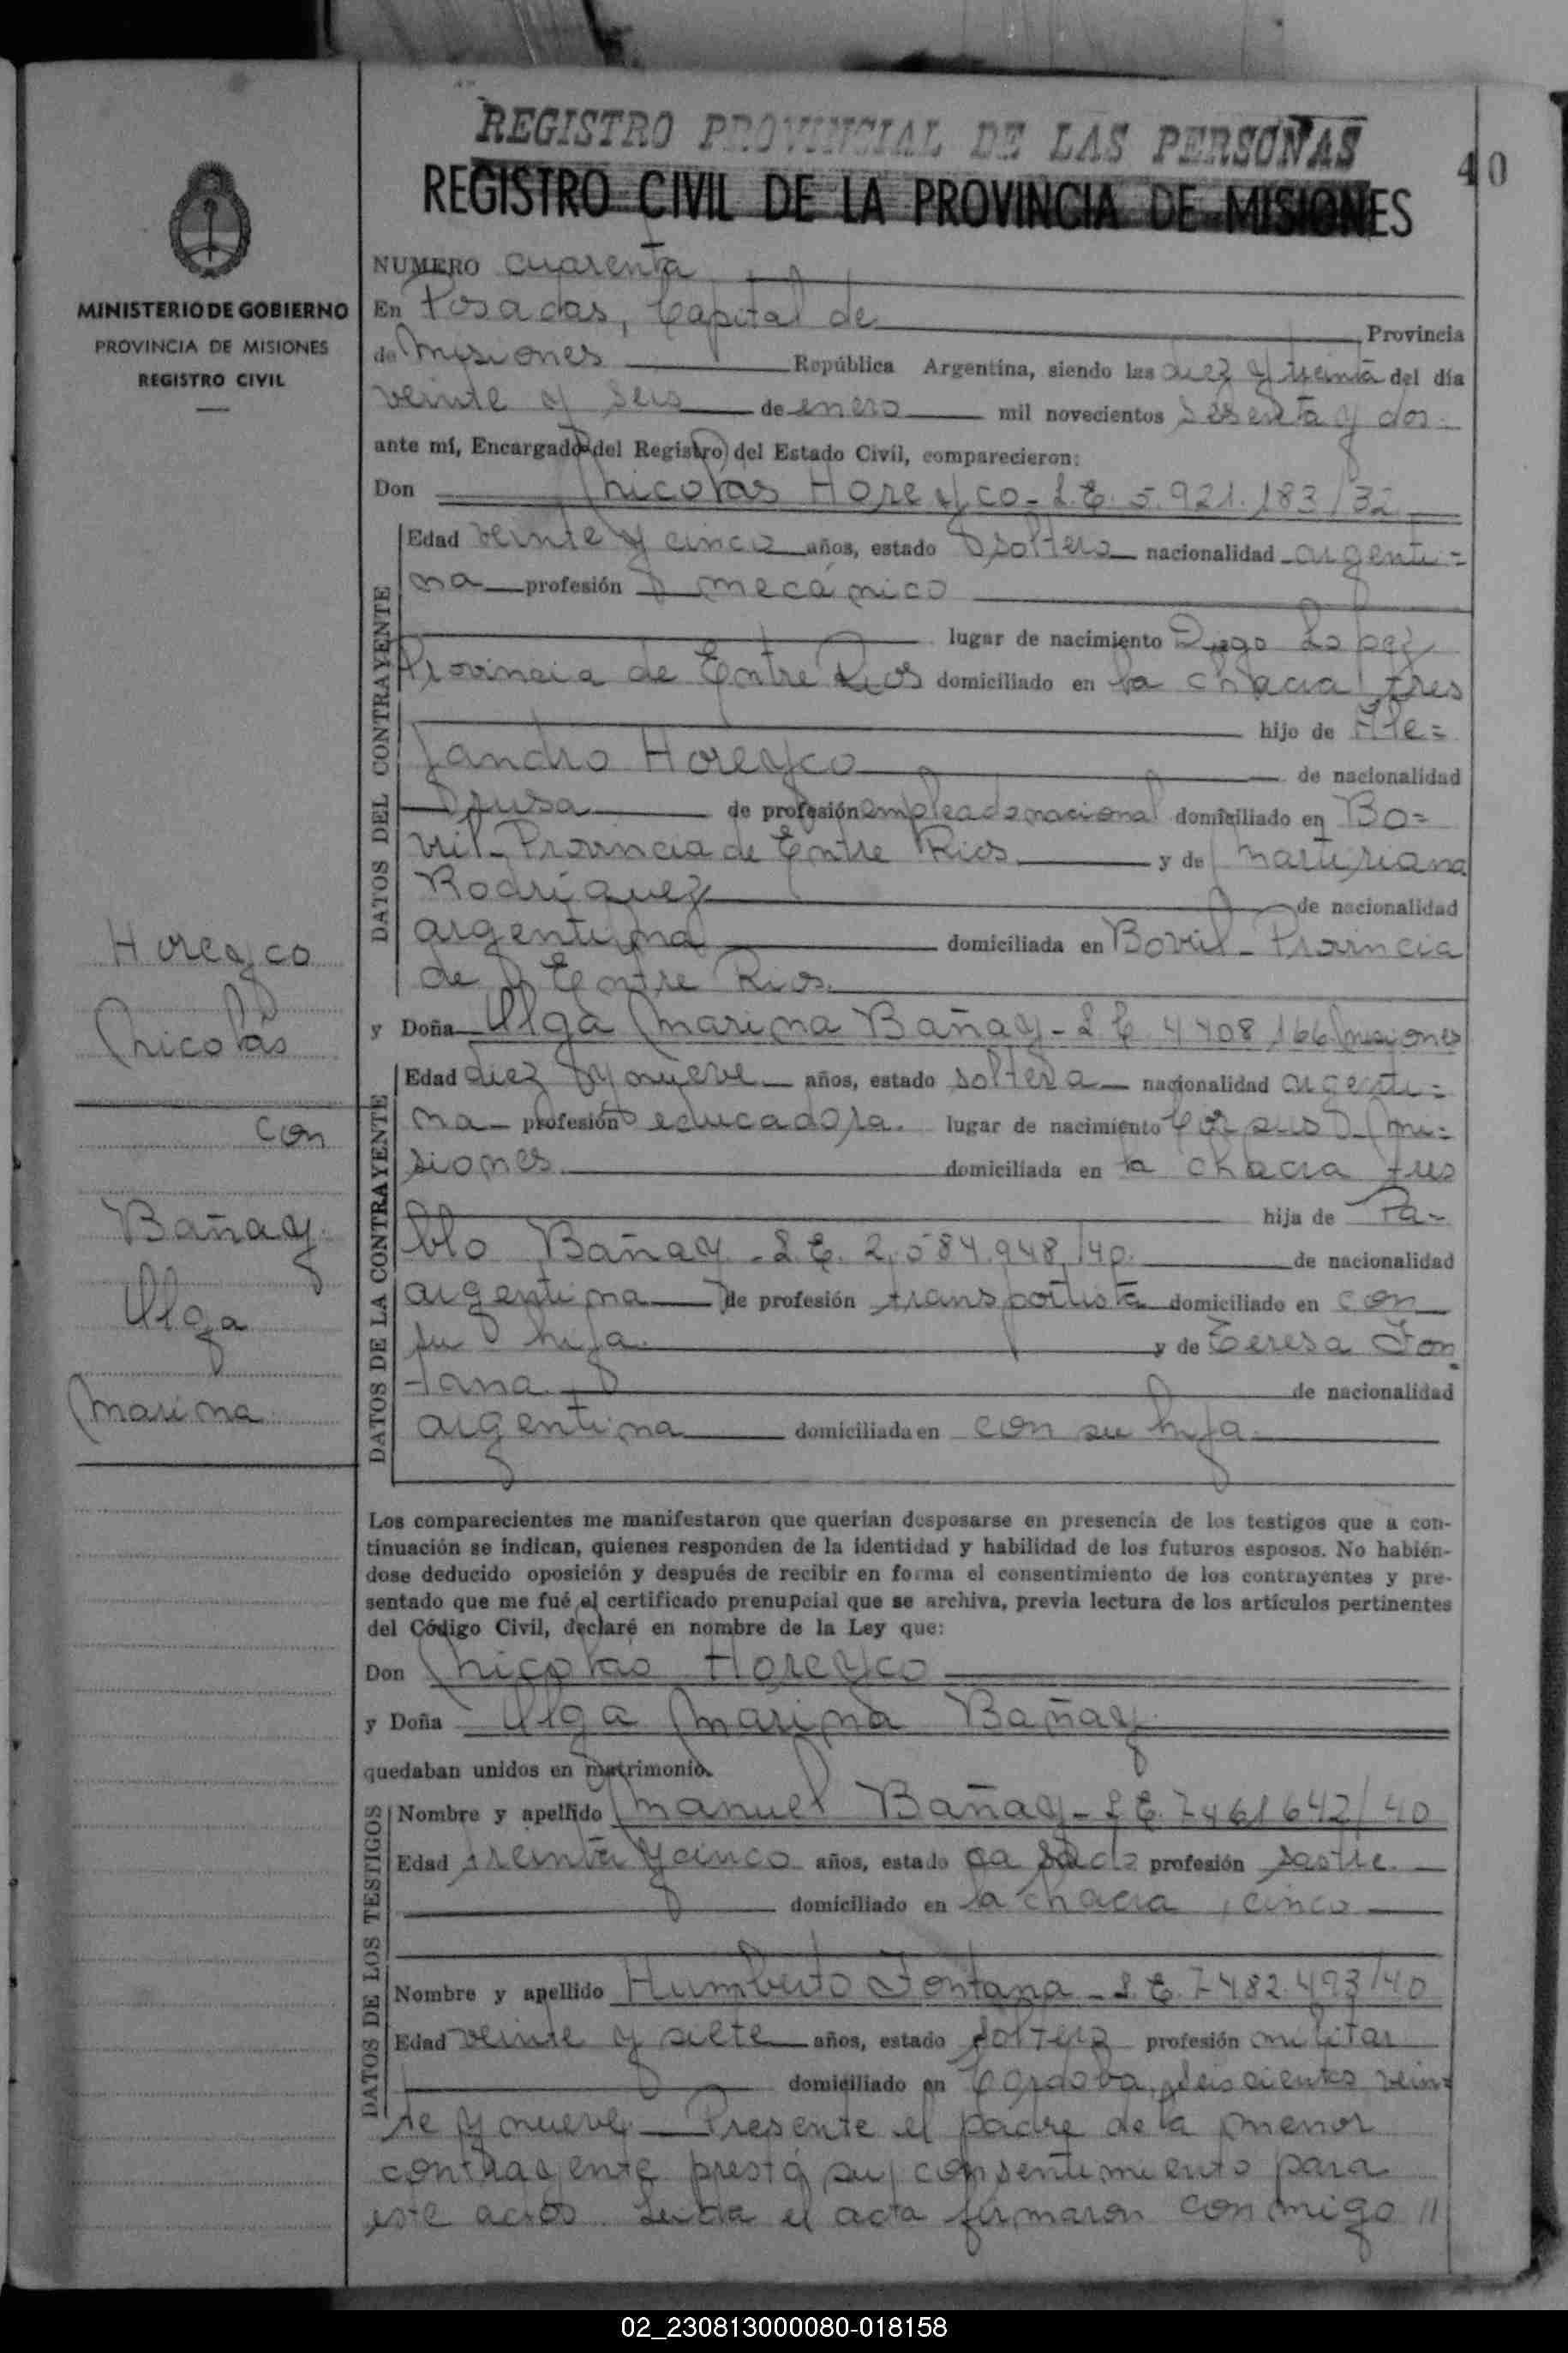 REGISTRO PROVINCIAL DE LAS PERSONAS
REGISTRO CIVIL DE LA PROVINCIA DE MISIONES
40
MINISTERIO DE GOBIERNO
PROVINCIA DE MISIONES
REGISTRO CIVIL
Horeyco
Nicolas
con
Bañay
Olga
Marina
NUMERO cuarenta
En Posadas, Capital de Provincia
de Misiones República Argentina, siendo las diez y treinta del día
veinte y seis de enero mil novecientos sesenta y dos.
ante mí, Encargado del Registro del Estado Civil, comparecieron:
Don Nicolas Horeyco - L.E. 5.921.183/32
DATOS DEL CONTRAYENTE
Edad veinte y cinco años, estado soltero nacionalidad argenti=
na profesión mecánico
lugar de nacimiento Diego Lopez
Provincia de Entre Rios domiciliado en la chacra tres
hijo de Ale=
jandro Horeyco de nacionalidad
rusa de profesión empleado nacional domiciliado en Bo=
vril - Provincia de Entre Rios y de Martiriana
Rodríguez de nacionalidad
argentina domiciliada en Bovril - Provincia
de Entre Rios.
y Doña Olga Marina Bañay - L.C. 4.408.166 Misiones
DATOS DE LA CONTRAYENTE
Edad diez y nueve años, estado soltera nacionalidad argenti=
na profesión educadora. lugar de nacimiento Corpus - Mi=
siones domiciliada en la chacra tres
hija de Pa-
blo Bañay - L.E. 2.584.948/40. de nacionalidad
argentina de profesión transportista domiciliado en con
su hija. y de Teresa Fon
tana de nacionalidad
argentina domiciliada en con su hija.
Los comparecientes me manifestaron que querían desposarse en presencia de los testigos que a con-
tinuación se indican, quienes responden de la identidad y habilidad de los futuros esposos. No habién-
dose deducido oposición y después de recibir en forma el consentimiento de los contrayentes y pre-
sentado que me fué el certificado prenupcial que se archiva, previa lectura de los artículos pertinentes
del Código Civil, declaré en nombre de la Ley que:
Don Nicolas Horeyco
y Doña Olga Marina Bañay
quedaban unidos en matrimonio.
DATOS DE LOS TESTIGOS
Nombre y apellido Manuel Bañay - L.E. 7461642/40
Edad treinta y cinco años, estado casado profesión sastre.
domiciliado en la chacra cinco
Nombre y apellido Humberto Fontana - L.E. 7482.493/40
Edad veinte y siete años, estado soltero profesión militar
domiciliado en Córdoba, seiscientos vein=
te y nueve. Presente el padre de la menor
contrayente prestó su consentimiento para
este acto. Leida el acta firmaron conmigo //
02_230813000080-018158